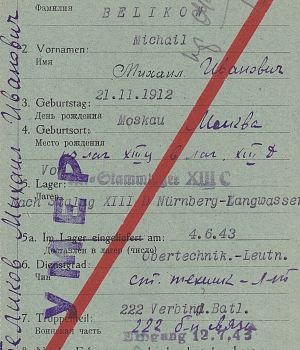 Фамилия
BELIKOW
2. Vornamen:
Michail
Имя
Михаил Иванович
3. Geburtstag:
21.11.1912
День рождения
4. Geburtsort:
Moskau
Москва
Место рождения
лаг XIII в лаг XIII D
Stammlager XIII C
Lager:
Лагерь
nach Stalag XIII D Nürnberg-Langwasser
5a. Im Lager eingeliefert am:
4.6.43
Доставлен в лагерь (число)
6. Dienstgrad:
Obertechnik.-Leutn.
Чин
ст. техник - л-т
222 Verbind.Batl.
7. Truppenteil:
222 б-н связи
Воинская часть
Eingang 12.7.43
УМЕР
Беликов Михаил Иванович